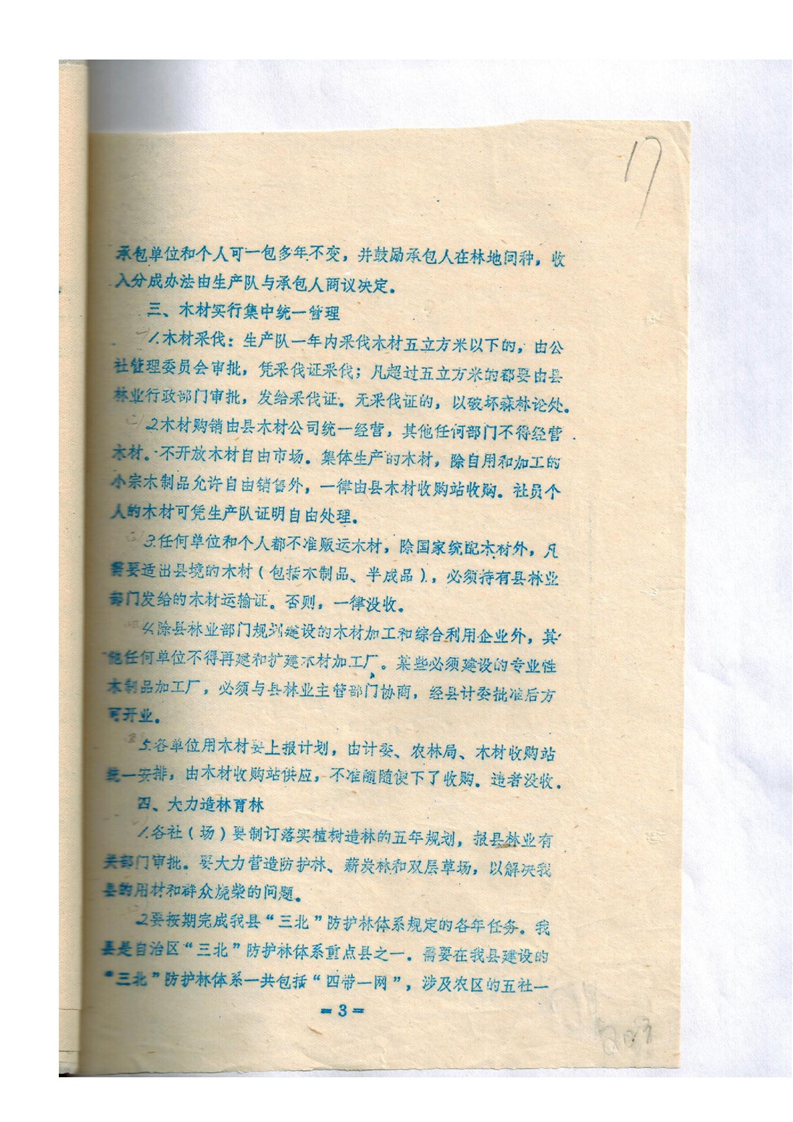 17
承包单位和个人可一包多年不变，并鼓励承包人在林地间种，收
入分成办法由生产队与承包人商议决定。
三、木材实行集中统一管理
1.木材采伐：生产队一年内采伐木材五立方米以下的，由公
社管理委员会审批，凭采伐证采伐；凡超过五立方米的都要由县
林业行政部门审批，发给采伐证。无采伐证的，以破坏森林论处。
2.木材购销由县木材公司统一经营，其他任何部门不得经营
木材。不开放木材自由市场。集体生产的木材，除自用和加工的
小宗木制品允许自由销售外，一律由县木材收购站收购。社员个
人的木材可凭生产队证明自由处理。
3.任何单位和个人都不准贩运木材，除国家统配木材外，凡
需要运出县境的木材（包括木制品、半成品），必须持有县林业
部门发给的木材运输证。否则，一律没收。
4.除县林业部门规划建设的木材加工和综合利用企业外，其
他任何单位不得再建和扩建木材加工厂。某些必须建设的专业性
木制品加工厂，必须与县林业主管部门协商，经县计委批准后方
可开业。
5.各单位用木材要上报计划，由计委、农林局、木材收购站
统一安排，由木材收购站供应，不准随随便下了收购。违者没收。
四、大力造林育林
1.各社（场）要制订落实植树造林的五年规划，报县林业有
关部门审批。要大力营造防护林、薪炭林和双层草场，以解决我
县的用材和群众烧柴的问题。
2.要按期完成我县“三北”防护林体系规定的各年任务。我
县是自治区“三北”防护林体系重点县之一。需要在我县建设的
“三北”防护林体系一共包括“四带一网”，涉及农区的五社一
=3=